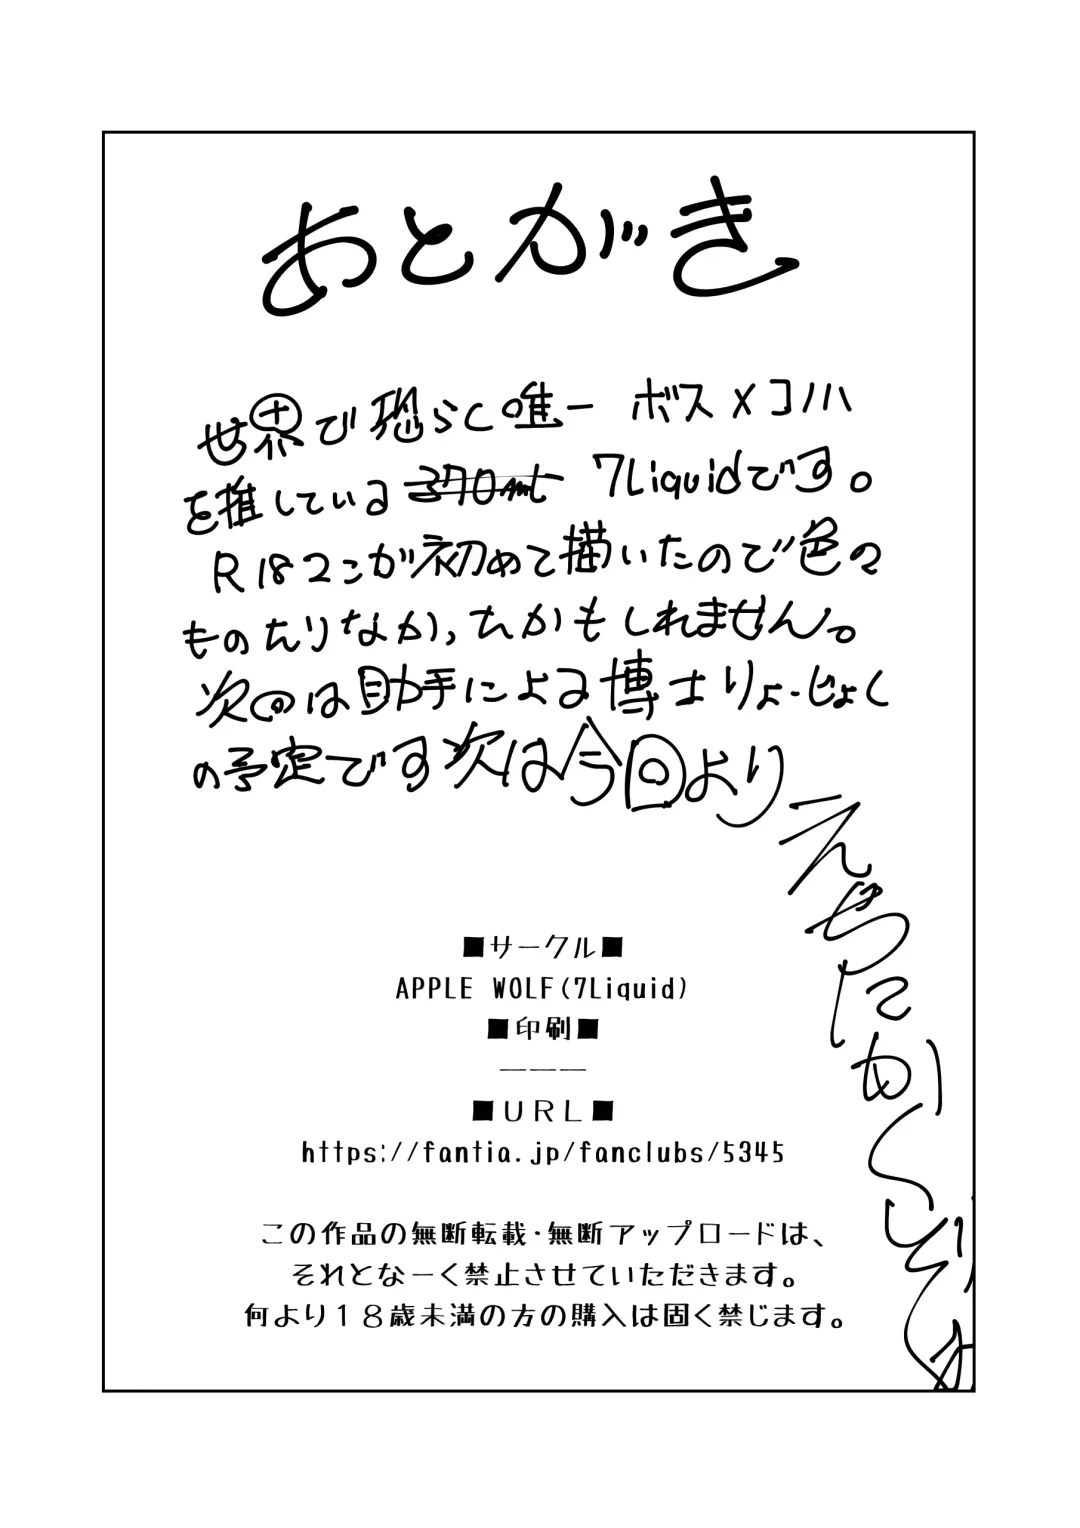 あとがき
世界で恐らく唯一 ボス×コノハ
を推している 370ml 7Liquidです。
R18マンガ初めて描いたので色々
ものたりなかったかもしれません。
次のは助手による博士りょーじょく
の予定です次は今回より
えちちにかく
■サークル■
APPLE WOLF(7Liquid)
■印刷■
———
■URL■
https://fantia.jp/fanclubs/5345
この作品の無断転載・無断アップロードは、
それとなーく禁止させていただきます。
何より１８歳未満の方の購入は固く禁じます。